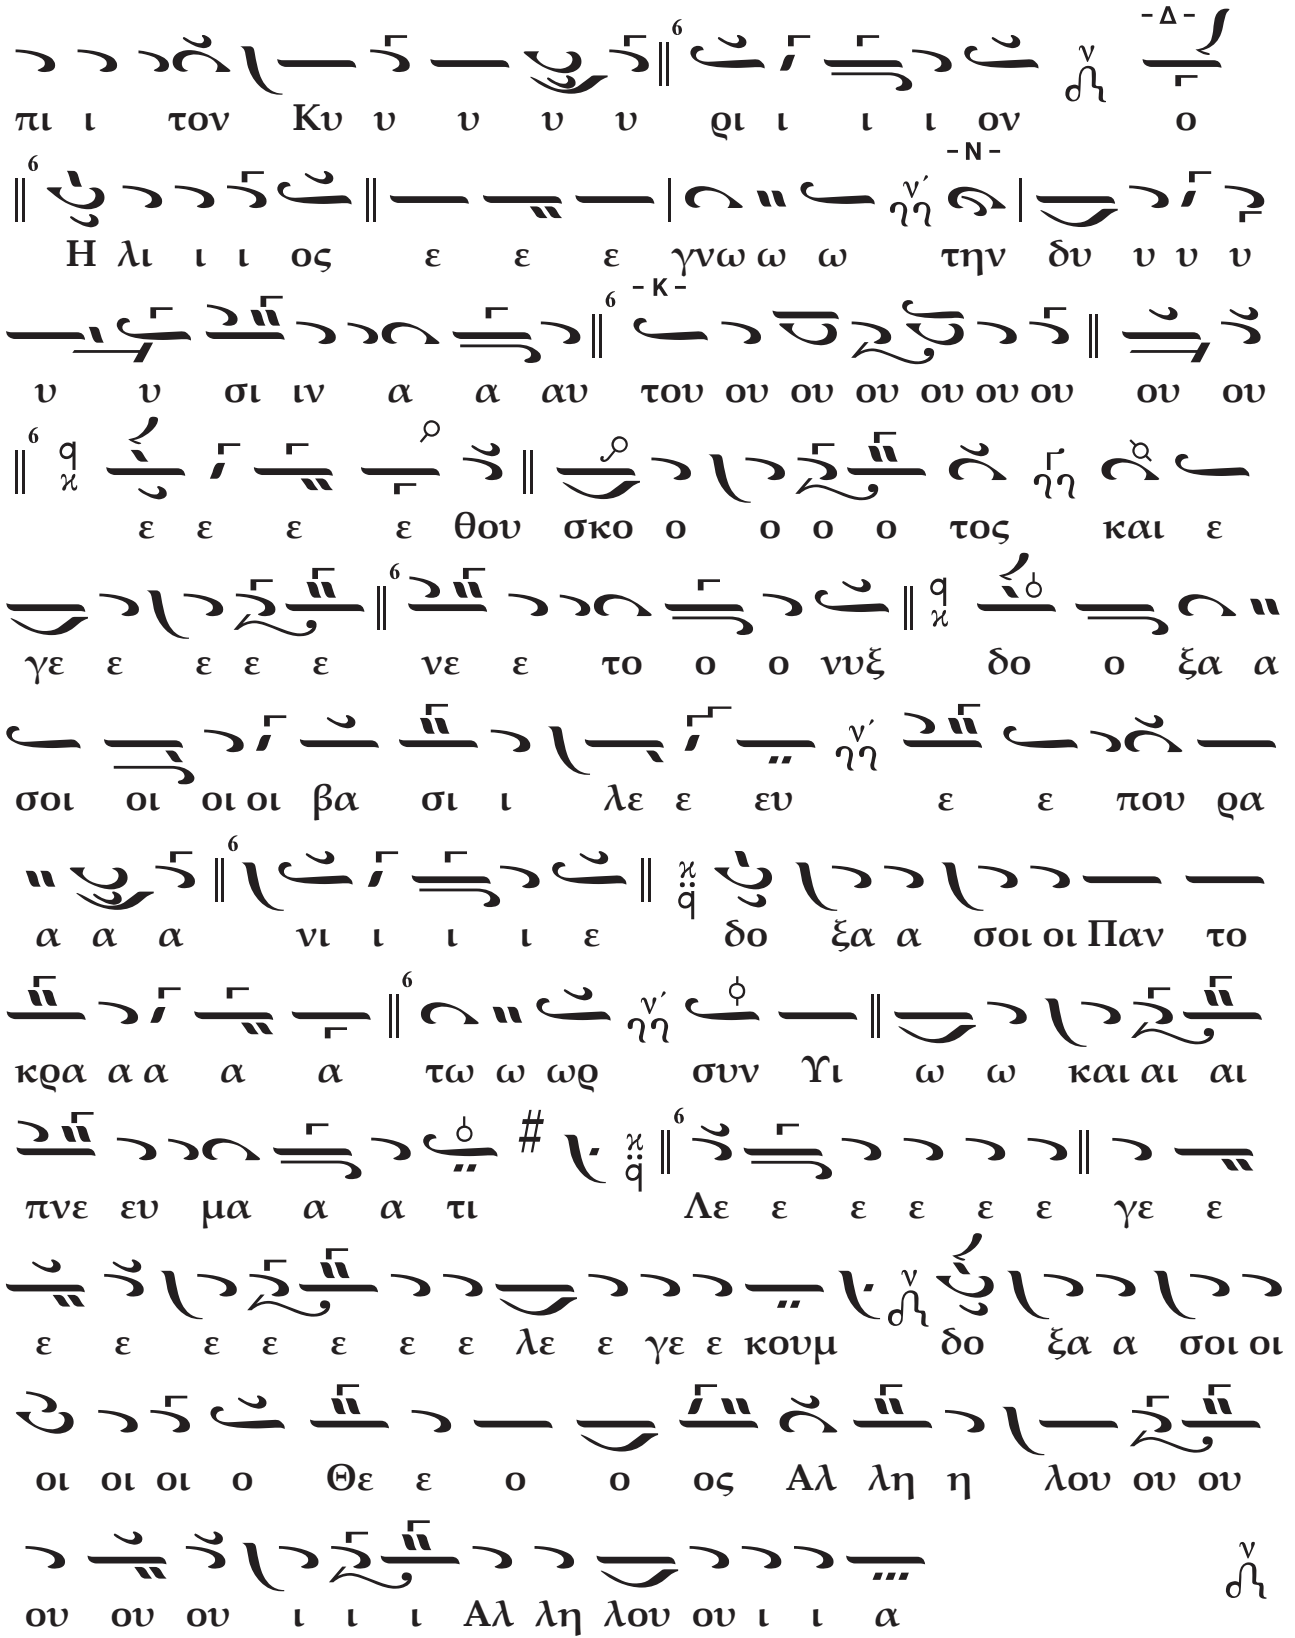 πι ι τον Κυ υ υ υ υ ρι ι ι ι ον ο
Η λι ι ι ος ε ε ε γνω ω ω την δυ υ υ υ
υ υ σι ιν α α αυ του ου ου ου ου ου ου ου ου
ε ε ε ε θου σκο ο ο ο ο τος και ε
γε ε ε ε ε νε ε το ο ο νυξ δο ο ξα α
σοι οι οι οι βα σι ι λε ε ευ ε ε που ρα
α α α νι ι ι ι ε δο ξα α σοι οι Παν το
κρα α α α α τω ω ωρ συν Υι ω ω και αι αι
πνε ευ μα α α τι Λε ε ε ε ε ε γε ε
ε ε ε ε ε ε ε λε ε γε ε κουμ δο ξα α σοι οι
οι οι οι ο Θε ε ο ο ος Αλ λη η λου ου ου
ου ου ου ι ι ι Αλ λη λου ου ι ι α